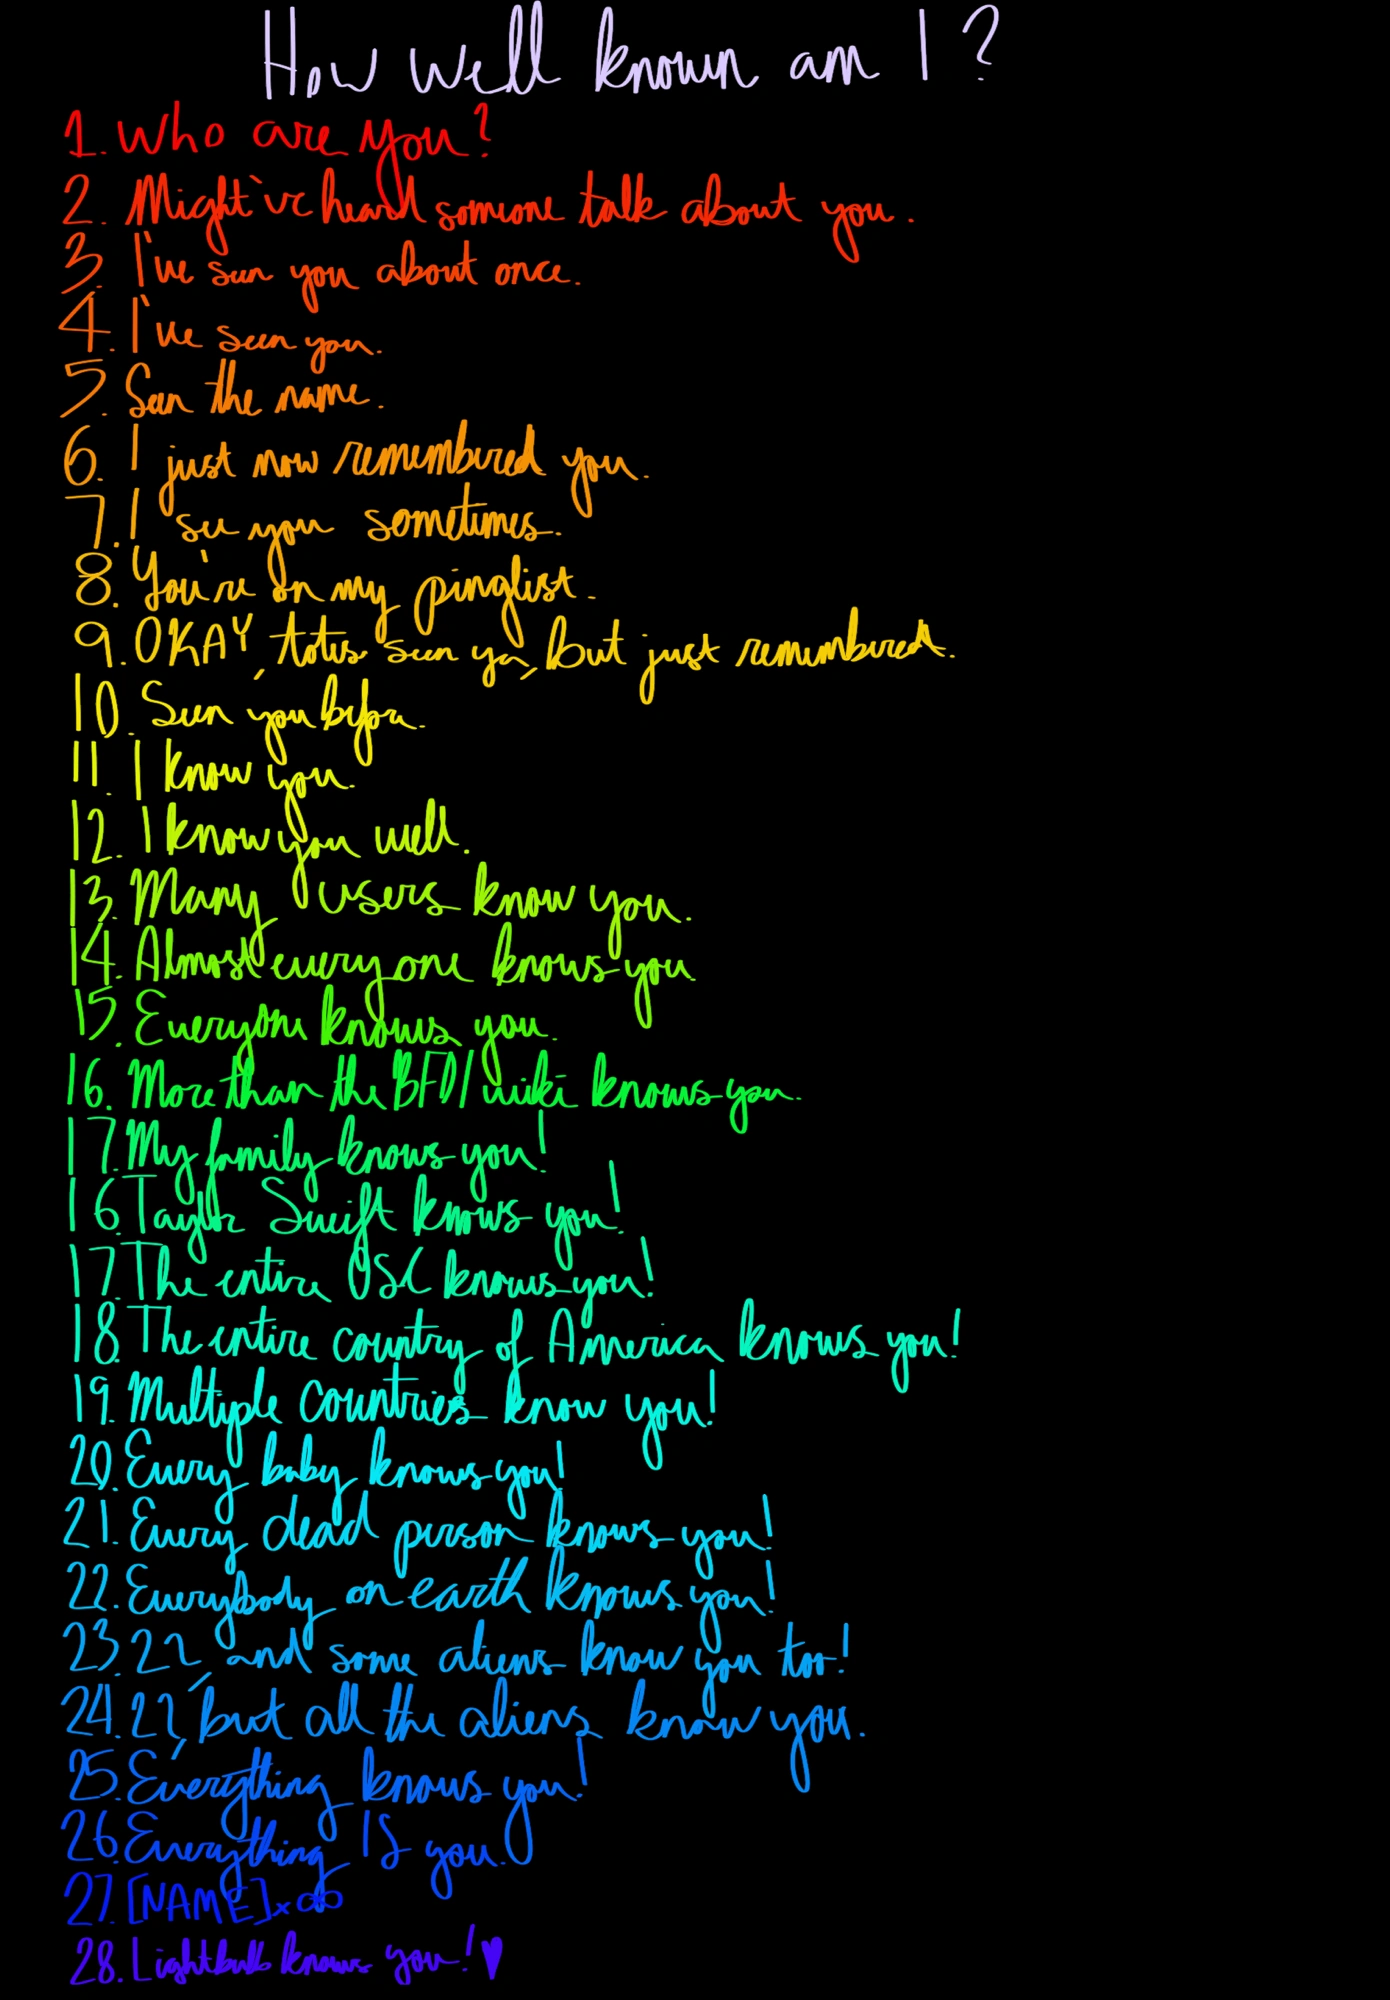 How well known am I?
1. Who are you?
2. Might've heard someone talk about you.
3. I've seen you about once.
4. I've seen you.
5. Seen the name.
6. I just now remembered you.
7. I see you sometimes.
8. You're on my pinglist.
9. OKAY, totes seen ya, but just remembered.
10. Seen you before.
11. I know you.
12. I know you well.
13. Many users know you.
14. Almost everyone knows you.
15. Everyone knows you.
16. More than the BFDI wiki knows you.
17. My family knows you!
16. Taylor Swift knows you!
17. The entire OSC knows you!
18. The entire country of America knows you!
19. Multiple countries know you!
20. Every baby knows you!
21. Every dead person knows you!
22. Everybody on earth knows you!
23. 22, and some aliens know you too!
24. 22, but all the aliens know you.
25. Everything knows you!
26. Everything IS you.
27. [NAME]x∞
28. Lightbulb knows you! ♥